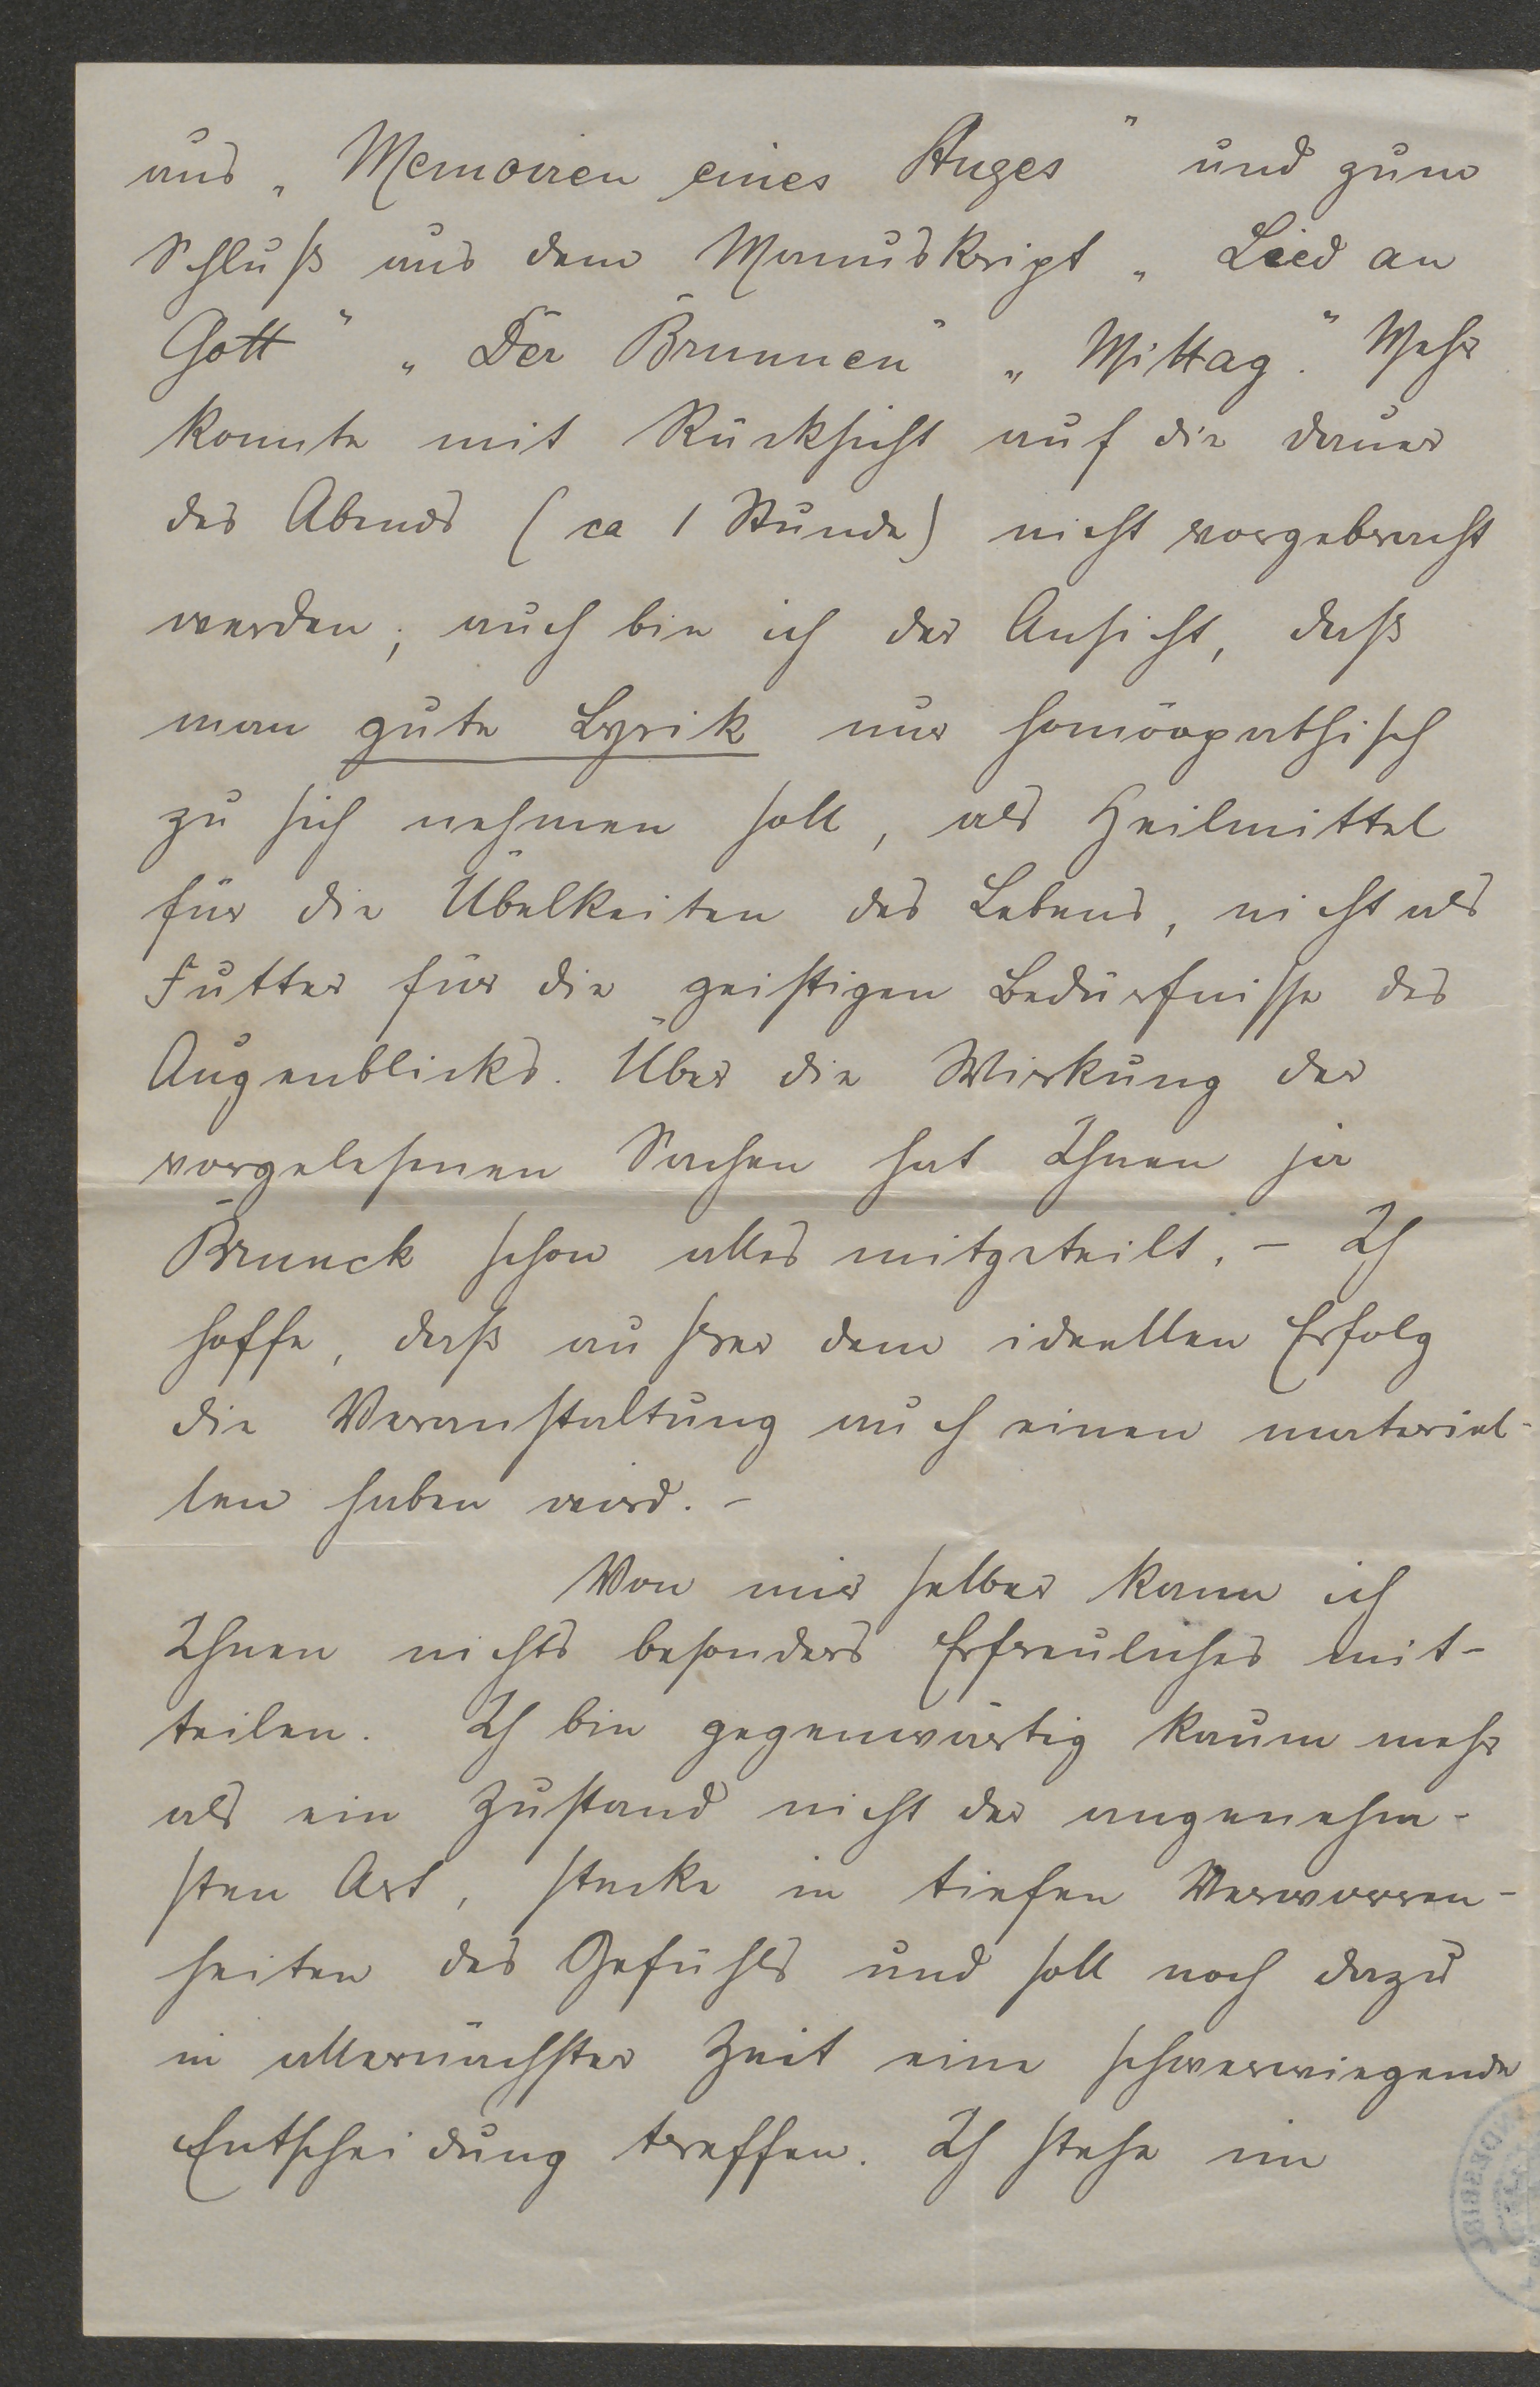 aus „Memoiren eines Auges" und zum
Schluß aus dem Manuskript „Lied an
Gott" „Der Brunnen" „Mittag". Mehr
konnte mit Rücksicht auf die Dauer
des Abends (ca 1 Stunde) nicht vorgebracht
werden; auch bin ich der Ansicht, daß
man gute Lyrik nur homöopathisch
zu sich nehmen soll, als Heilmittel
für die Übelkeiten des Lebens, nicht als
Futter für die geistigen Bedürfnisse des
Augenblicks. Über die Wirkung der
vorgelesenen Sachen hat Ihnen ja
Brunck schon alles mitgeteilt. – Ich
hoffe, daß außer dem ideellen Erfolg
die Veranstaltung auch einen materiel-
len haben wird. –
Von mir selber kann ich
Ihnen nichts besonders Erfreuliches mit-
teilen. Ich bin gegenwärtig kaum mehr
als ein Zustand nicht der angenehm-
sten Art, stecke in tiefen Verworren-
heiten des Gefühls und soll noch dazu
in allernächster Zeit eine schwerwiegende
Entscheidung treffen. Ich stehe im